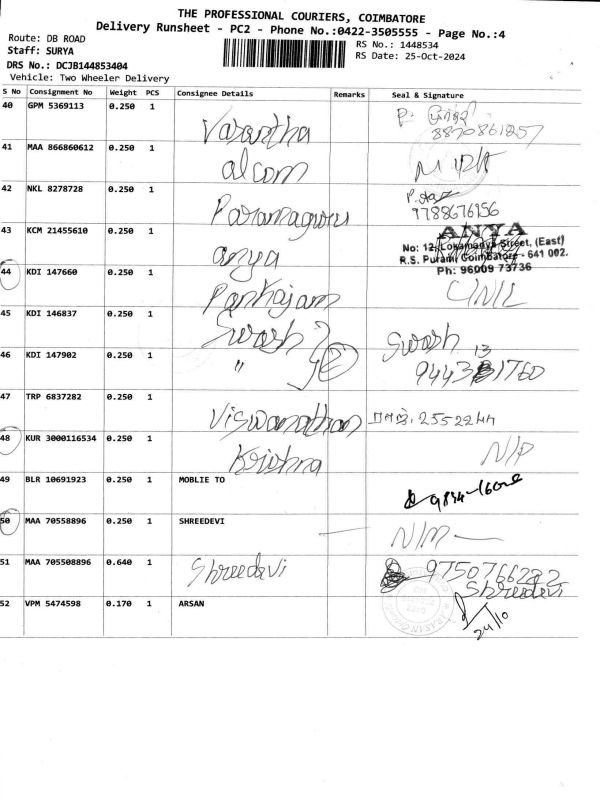 THE PROFESSIONAL COURIERS, COIMBATORE
Delivery Runsheet - PC2 - Phone No.:0422-3505555 - Page No.:4
Route: DB ROAD
RS No.: 1448534
Staff: SURYA
RS Date: 25-Oct-2024
DRS No.: DCJB144853404
Vehicle: Two Wheeler Delivery
S No Consignment No Weight PCS Consignee Details Remarks Seal & Signature
40 GPM 5369113 0.250 1 Vasantha
8870861257
41 MAA 866860612 0.250 1 alcom
42 NKL 8278728 0.250 1 Paramaguru
9788676956
43 KCM 21455610 0.250 1 anya ANYA
No: 12, Lokamanya Street, (East)
R.S. Puram, Coimbatore - 641 002.
Ph: 96009 73736
44 KDI 147660 0.250 1 Pankajam
45 KDI 146837 0.250 1 Swash Swash
46 KDI 147902 0.250 1 " 2
47 TRP 6837282 0.250 1 Viswanathan 2552244
48 KUR 3000116534 0.250 1 Krishna N/P
49 BLR 10691923 0.250 1 MOBLIE TO
50 MAA 70558896 0.250 1 SHREEDEVI N/M
51 MAA 705508896 0.640 1 Shreedevi 9750766282
Shreedevi
52 VPM 5474598 0.170 1 ARSAN
24/10